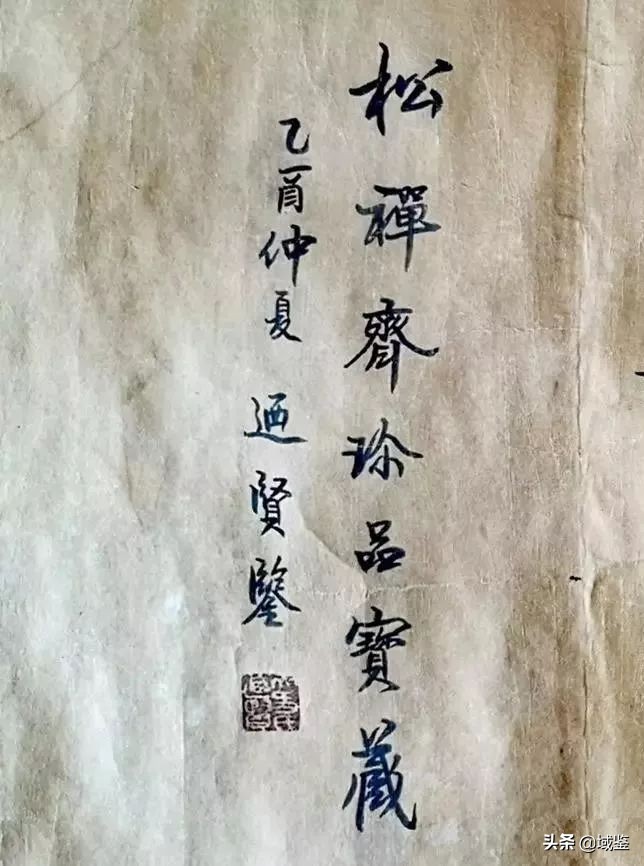 松禪齋珍品寶藏
乙酉仲夏 迺賢鑒
头条 @域鉴